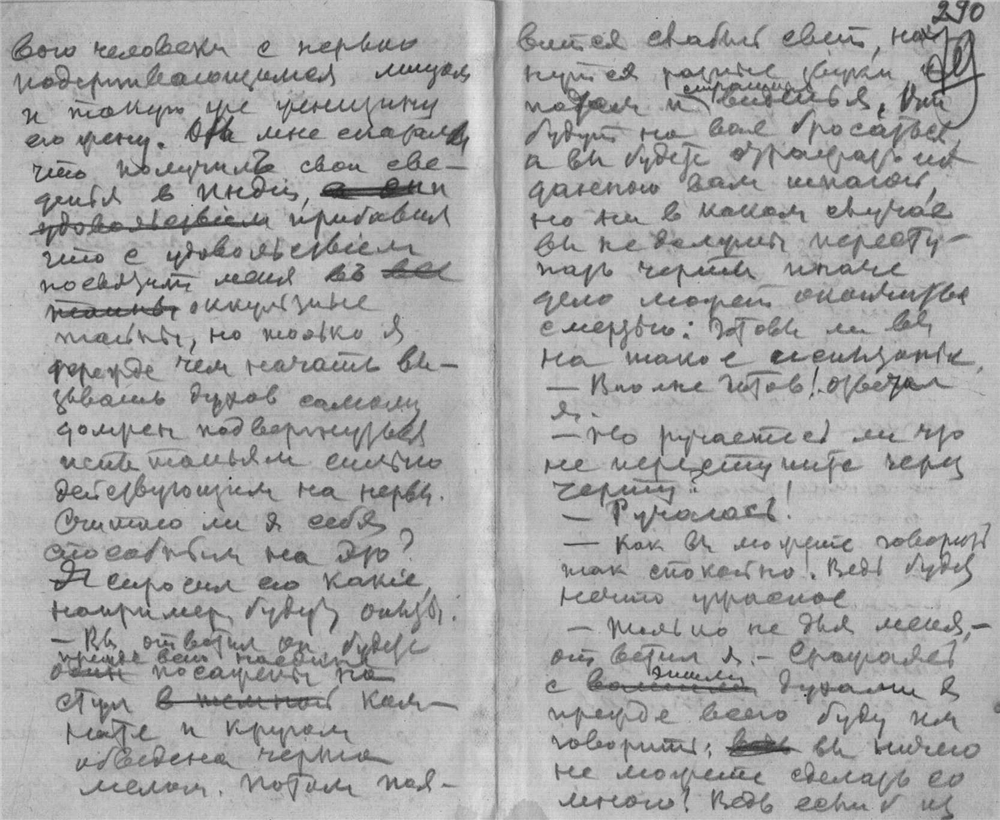 вого человека с нервно
подергивающимся лицом
и такую же женщину
его жену. Он мне сказал
что получилъ свои све-
денья в Индіи,
удовольствіем прибавил
что с удовольствіем
посвятит меня въ все
тайны оккультные
тайны, но только я
прежде чем начать вы-
зывать духов самому
должен подвергнуться
испытаньям сильно
действующим на нервы.
Считаю ли я себя
способным на это?
Я спросил его какіе,
например, будут опыты.
— Вы ответил он будете
прежде всего наедине
посажены на
стул в темной ком-
нате и кругом
обведена черта
мелом. Потом поя-
290
вится слабый свет, нач
нутся разные звуки, а
страшныя
потом и виденья. Они
будут на вас бросаться
а вы будете отражать их
данною вам шпагой,
но ни в каком случае
вы не должны пересту-
пать черты иначе
дело может окончиться
смертью: Готовы ли вы
на такое испытаніе,
— Вполне готов! отвечал
я.
— Но ручаетесь ли что
не переступите через
черту?
— Ручаюсь!
— Как вы можете говорить
так спокойно! Ведь будет
нечто ужасное
— Только не для меня, —
ответил я. — Сражаясь
с духами я
прежде всего буду им
говорить: вы ничего
не можете сделать со
мною! Ведь если б из